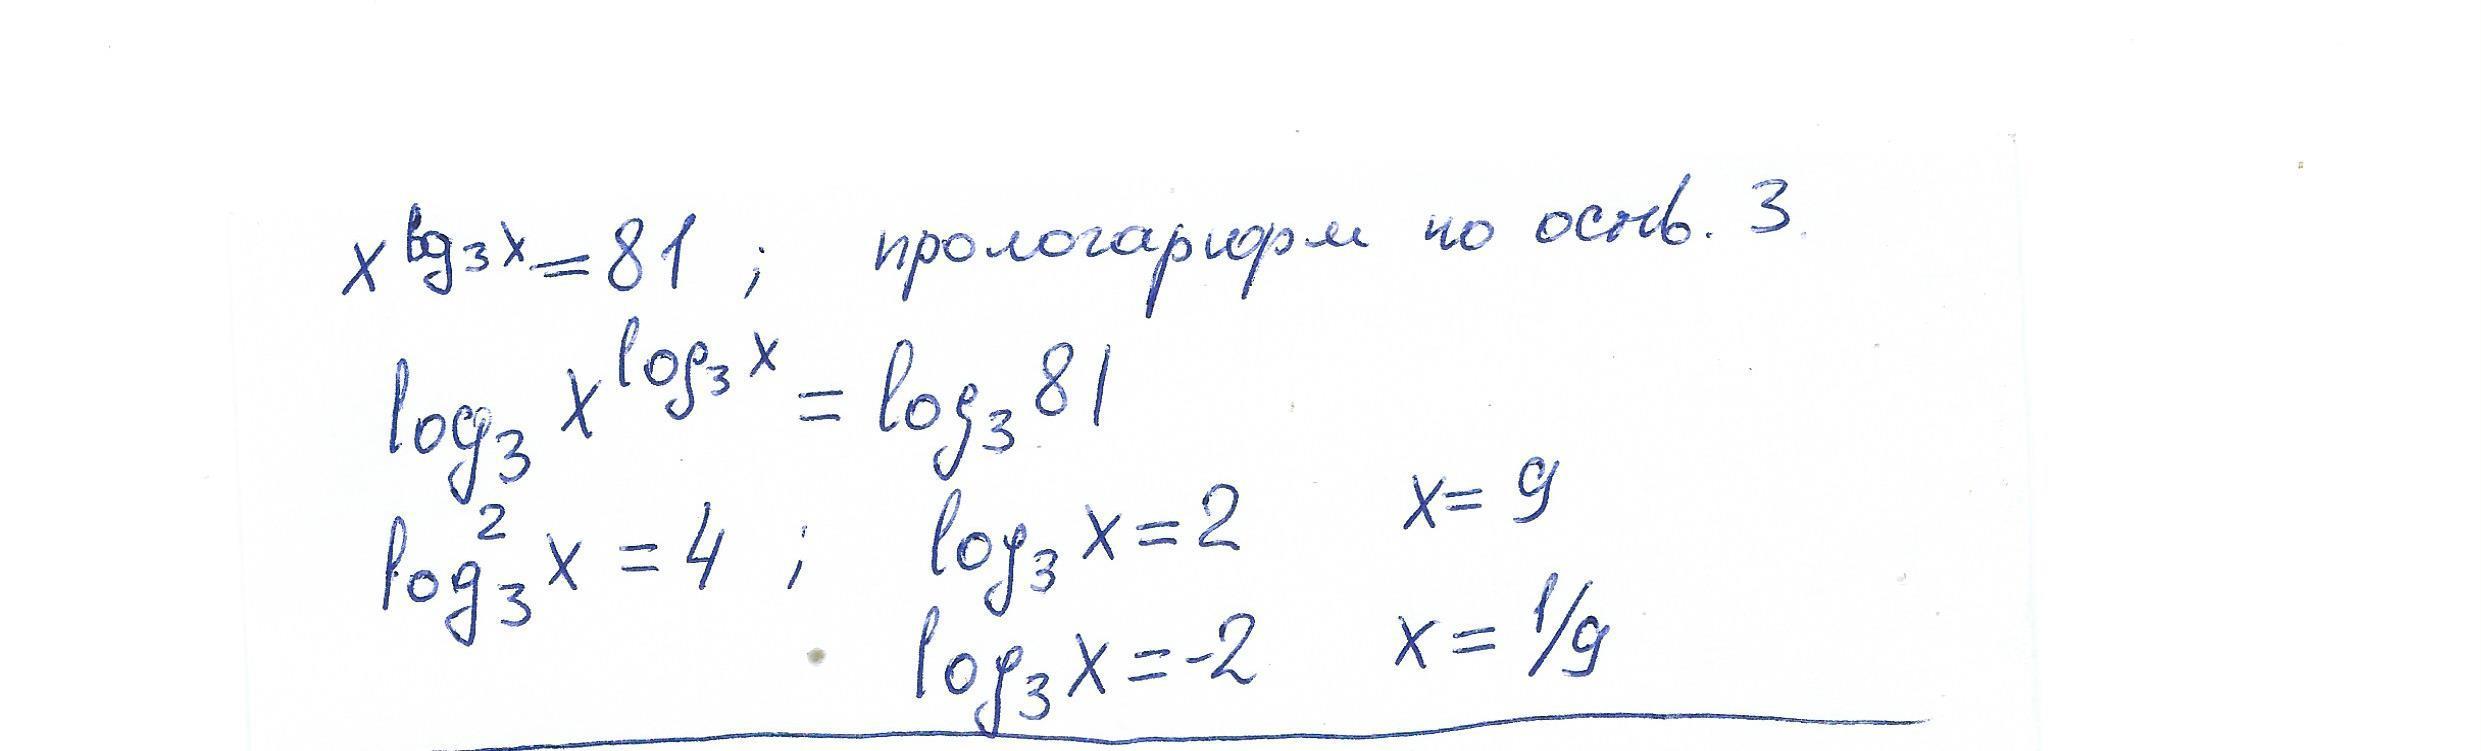 x^log₃x = 81 ; прологарифм по оснв. 3.
log₃ x^log₃x = log₃ 81
log₃²x = 4 ; log₃x = 2 x = 9
log₃x = -2 x = 1/9